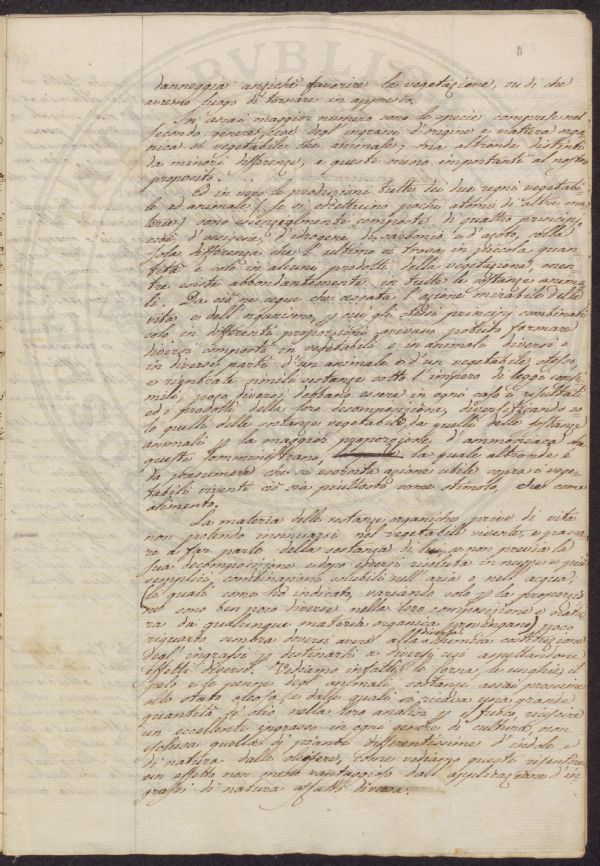 8
danneggia anzichè favorire la vegetazione, su di che
avremo luogo di tornare in appresso.
In assai maggior numero sono le specie comprese nel
secondo genere, cioè degl'ingrassi d'origine e natura orga
nica sì vegetabile che animale, ma altronde distinti
da minori differenze, e queste meno importanti al nostro
proposito.
Ed in vero le produzioni tratte dai due regni vegetabi
le ed animale (se si eccettuino pochi atomi di altre ma
terie) sono essenzialmente composte di quattro principj
cioè, d'ossigene, d'idrogene, di carbonio e d'azoto, colla
sola differenza che l'ultimo si trova in piccola quan
tità e solo in alcuni prodotti della vegetazione, men
tre esiste abbondantemente in tutte le sostanze anima
li. Da ciò ne segue che cessata l'azione mirabile della
vita e dell'organismo, p cui gli stessi principj combinati
solo in differenti proporzioni avevano potuto formare
diversi composti in vegetabili e in animali diversi o
in diverse parti d'un animale o d'un vegetabile stesso,
e rientrate simili sostanze sotto l'impero di leggi consi
mili, poco diversi debbano essere in ogni caso i resultati
ed i prodotti della loro decomposizione, diversificando so
lo quelli delle sostanze vegetabili da quelli delle sostanze
animali p la maggior proporzione d'ammoniaca che
queste somministrano, la quale altronde è
da presumere che se esercita azione utile sopra i vege
tabili viventi ciò sia piuttosto come stimolo, che come
alimento.
La materia delle sostanze organiche prive di vita
non potendo insinuarsi nel vegetabile vivente, e passa
re a far parte della sostanza di lui, se non previa la
sua decomposizione e dopo essersi risoluta in nuove e più
semplici combinazioni solubili nell'aria o nell'acqua,
(le quali come ho indicato, variando solo p la proporzio
ne sono ben poco diverse nella loro composizione e natu
ra da qualunque materia organica provengano) poco
riguardo sembra doversi avere alla diversa costituzione
degl'ingrassi p destinarli a diversi usi aspettandone
effetti diversi. Vediamo infatti le corna, le unghie, il
pelo e le penne degli animali sostanze assai prossime
allo stato oleoso (e dalle quali si ricava una grande
quantità di olio nella loro analisi p il fuoco) riuscire
un eccellente ingrasso in ogni genere di cultura, non
esclusa quella di piante differentissime d'indole e
di natura dalle oleifere, come vediamo queste risentire
un effetto non meno vantaggioso dall'applicazione d'in
grassi di natura affatto diversa.